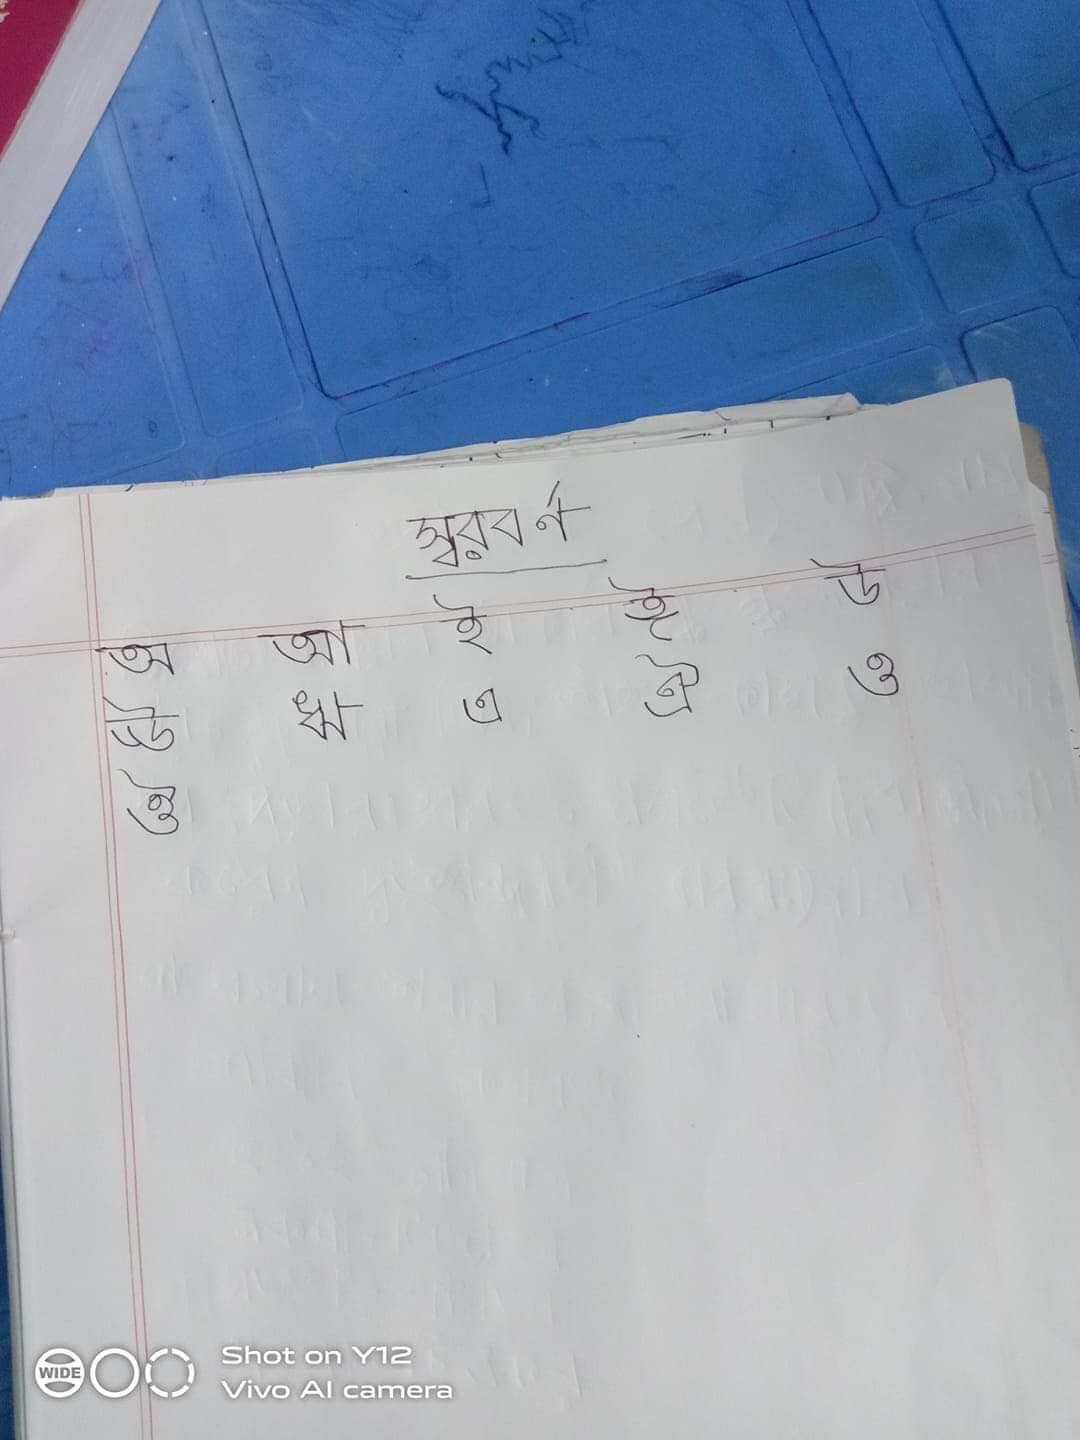 স্বরবর্ন
অ আ ই ঈ উ
ঊ ঋ এ ঐ ও
ঔ
WIDE
Shot on Y12
Vivo AI camera